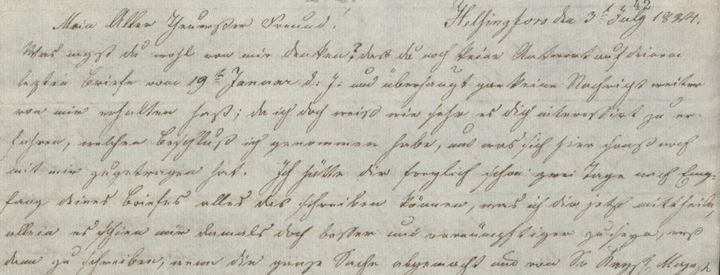 42
Mein Aller Theuerster Freund! Helsingfors den 3t July 1824.
Was magst du wohl von mir denken? daß du noch keine Antwort auf deinen
letzten Briefe vom 19t Januar d: J: und überhaupt gar keine Nachricht weiter
von mir erhalten hast; da ich doch weiß wie sehr es dich interessirt zu er-
fahren, welchen Beschluß ich genommen habe, und was sich hier sonst noch
mit mir zugetragen hat. Ich hätte dir freylich schon zwei Tage nach Emp-
fang deines Briefes alles das schreiben können, was ich dir jetzt mittheile,
allein es schien mir damals doch besser und vernünftiger zu seyn, erst
dann zu schreiben, wenn die ganze Sache abgemacht und von Sr Kayserl. Mayest